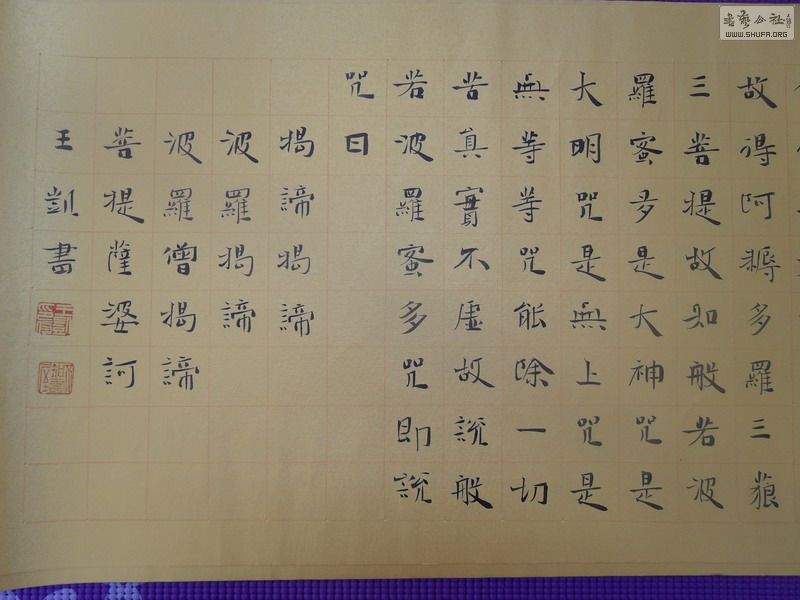 故得阿耨多羅三藐
三菩提故知般若波
羅蜜多是大神咒是
大明咒是無上咒是
無等等咒能除一切
苦真實不虛故說般
若波羅蜜多咒即說
咒曰
揭諦揭諦
波羅揭諦
波羅僧揭諦
菩提薩婆訶
王凱書
書藝公社
WWW.SHUFA.ORG